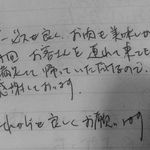 ビスが良く、お肉も美味しい
毎回 お客さんを連れて来ても
満足して帰っていただけるので、
感謝しております。
これからも良しくお願います